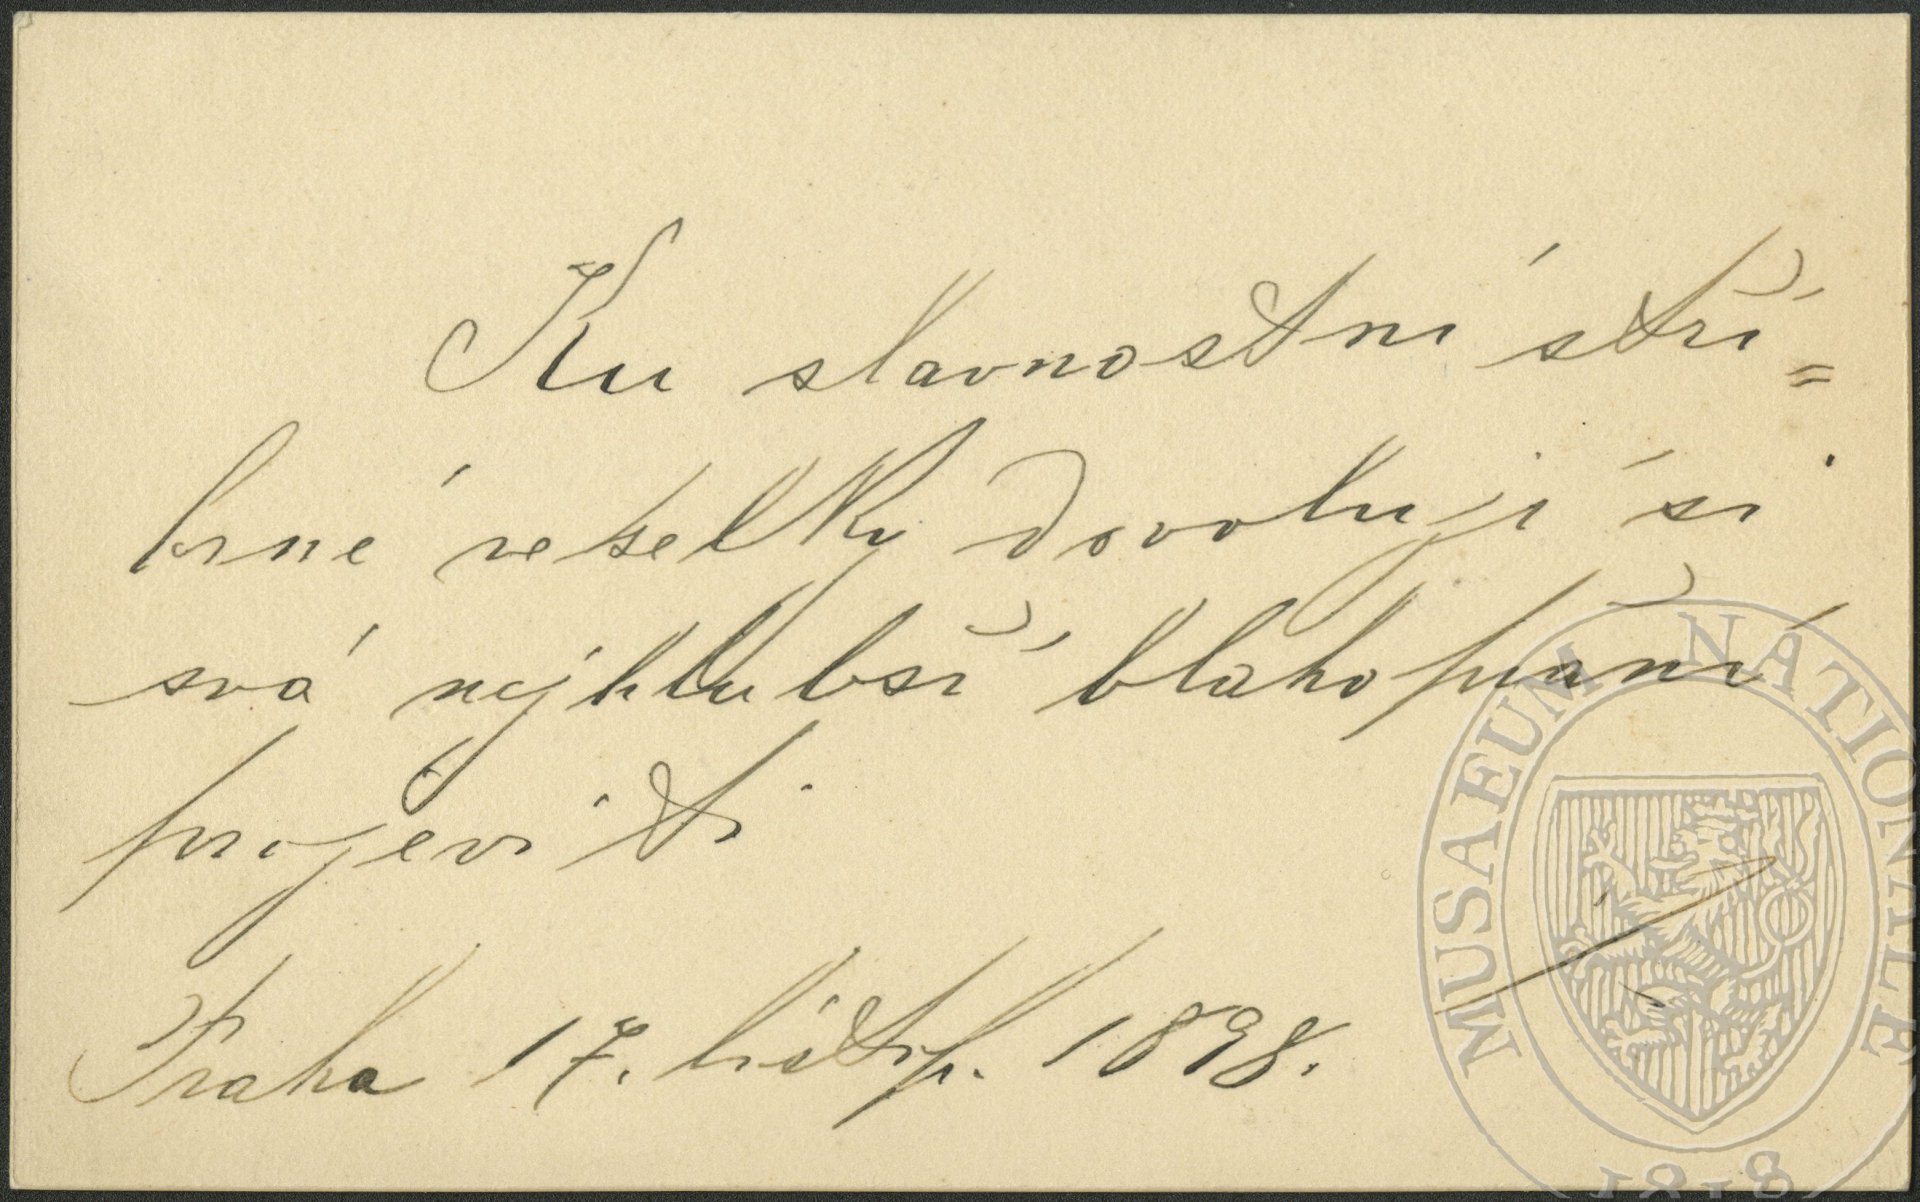 Ku slavnostní stří=
brné veselky dovoluji si
svá nejhlubší blahopřání
projeviti
Praha 17. listop. 1898.
MUSAEUM NATIONALE
1818